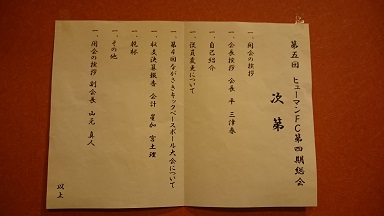 第五回 ヒューマンFC第四期総会
次第
一、開会の挨拶
一、会長挨拶 会長 平 三津春
一、自己紹介
一、役員変更について
一、第4回ながさきキックベースボール大会について
一、収支決算報告 会計
一、乾杯
一、その他
一、閉会の挨拶 副会長 山元 真人
以上